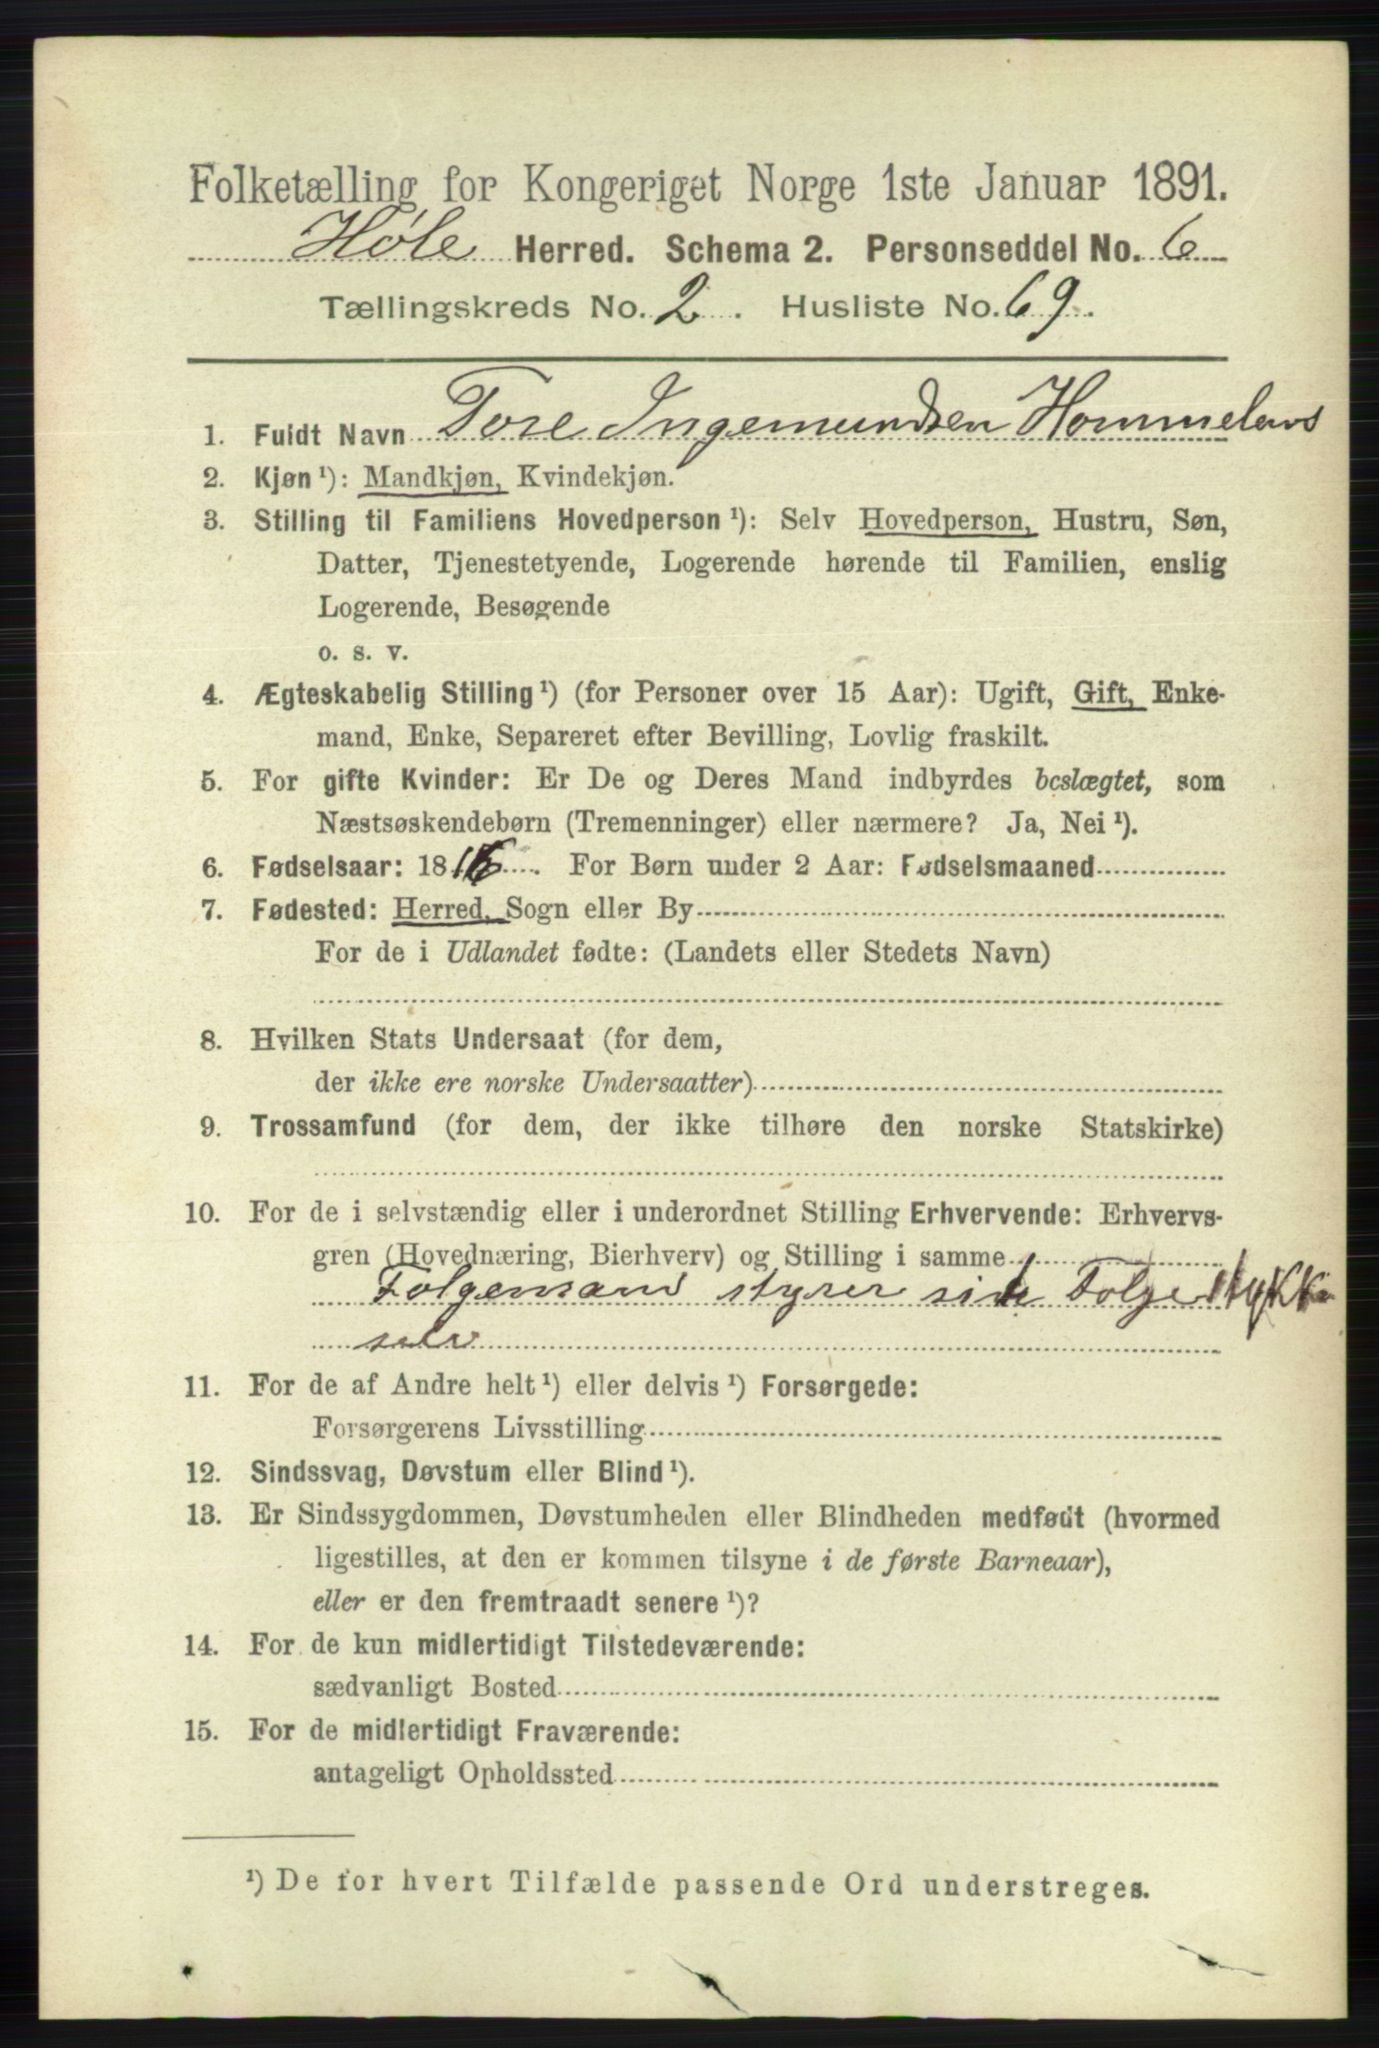 Folketælling for Kongeriget Norge 1ste Januar 1891.
Høle Herred. Schema 2. Personseddel No. 6
Tællingskreds No. 2. Husliste No. 69.
1. Fuldt Navn Tore Ingemundsen
2. Kjøn ¹): Mandkjøn, Kvindekjøn.
3. Stilling til Familiens Hovedperson ¹): Selv Hovedperson, Hustru, Søn,
Datter, Tjenestetyende, Logerende hørende til Familien, enslig
Logerende, Besøgende
o. s. v.
4. Ægteskabelig Stilling ¹) (for Personer over 15 Aar): Ugift, Gift, Enke-
mand, Enke, Separeret efter Bevilling, Lovlig fraskilt.
5. For gifte Kvinder: Er De og Deres Mand indbyrdes beslægtet, som
Næstsøskendebørn (Tremenninger) eller nærmere? Ja, Nei ¹).
6. Fødselsaar: 1816. For Børn under 2 Aar: Fødselsmaaned
7. Fødested: Herred, Sogn eller By
For de i Udlandet fødte: (Landets eller Stedets Navn)
8. Hvilken Stats Undersaat (for dem,
der ikke ere norske Undersaatter)
9. Trossamfund (for dem, der ikke tilhøre den norske Statskirke)
10. For de i selvstændig eller i underordnet Stilling Erhvervende: Erhvervs-
gren (Hovednæring, Bierhverv) og Stilling i samme
Folgemand styrer sit Folgestykke
selv
11. For de af Andre helt ¹) eller delvis ¹) Forsørgede:
Forsørgerens Livsstilling
12. Sindssvag, Døvstum eller Blind ¹).
13. Er Sindssygdommen, Døvstumheden eller Blindheden medfødt (hvormed
ligestilles, at den er kommen tilsyne i de første Barneaar),
eller er den fremtraadt senere ¹)?
14. For de kun midlertidigt Tilstedeværende:
sædvanligt Bosted
15. For de midlertidigt Fraværende:
antageligt Opholdssted
¹) De for hvert Tilfælde passende Ord understreges.